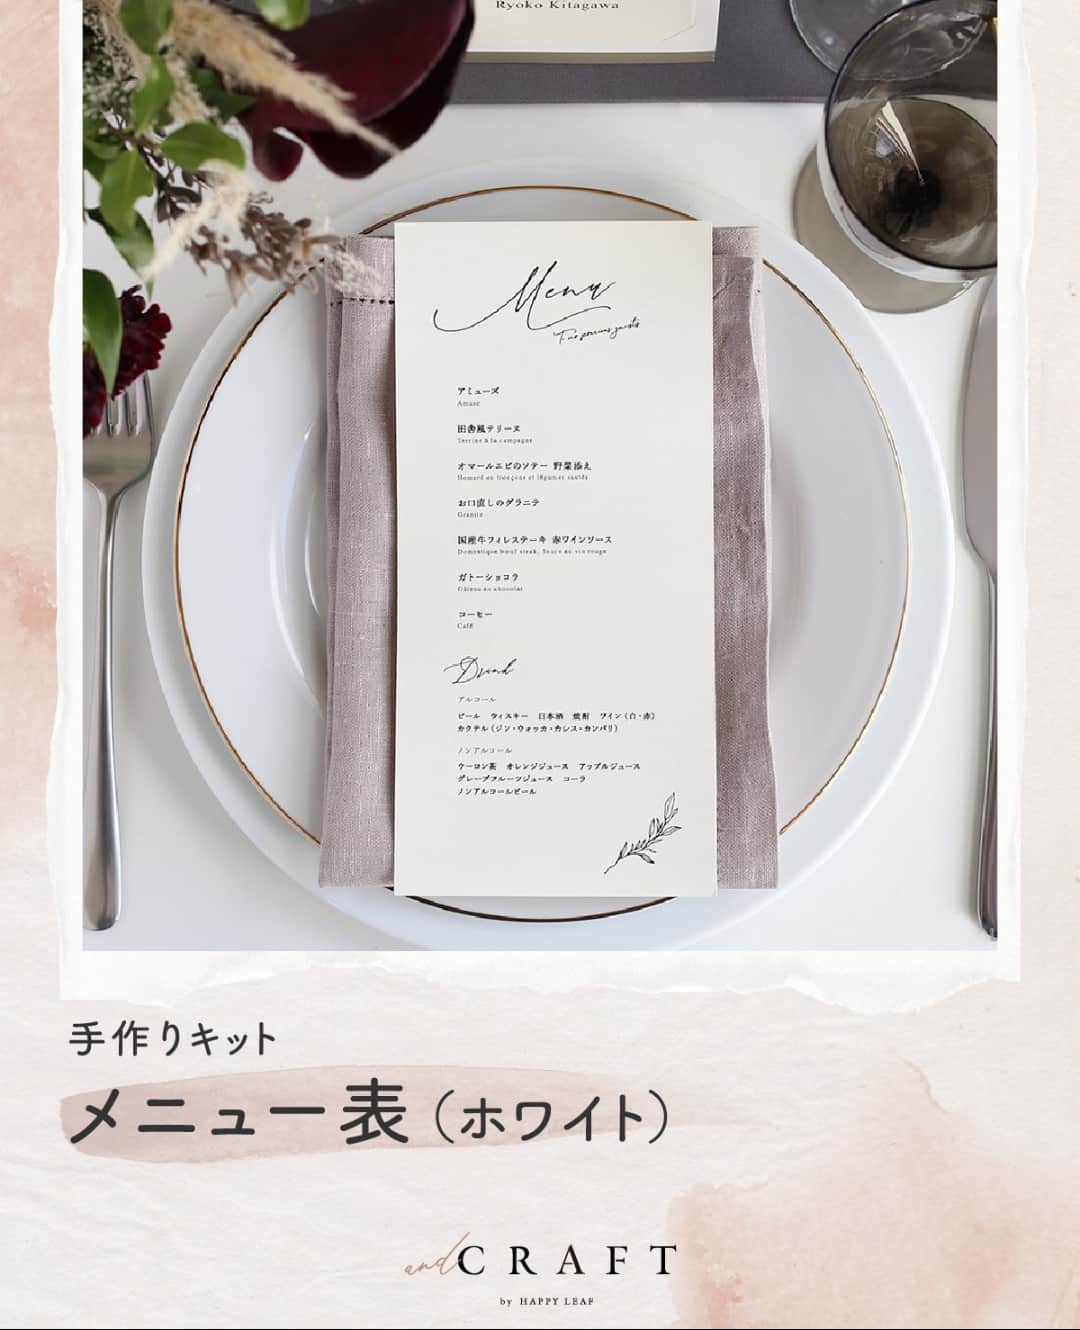 Ryoko Kitagawa
Menu
アミューズ
Amuse
田舎風テリーヌ
Terrine à la campagne
オマールエビのソテー 野菜添え
Homard en tronçons et légumes sautés
お口直しのグラニテ
Granite
国産牛フィレステーキ 赤ワインソース
Domestique bœuf steak, Sauce au vin rouge
ガトーショコラ
Gâteau au chocolat
コーヒー
Café
Drink
アルコール
ビール ウィスキー 日本酒 焼酎 ワイン（白・赤）
カクテル（ジン・ウォッカ・カシス・カンパリ）
ノンアルコール
ウーロン茶 オレンジジュース アップルジュース
グレープフルーツジュース コーラ
ノンアルコールビール
手作りキット
メニュー表（ホワイト）
and CRAFT
by HAPPY LEAF